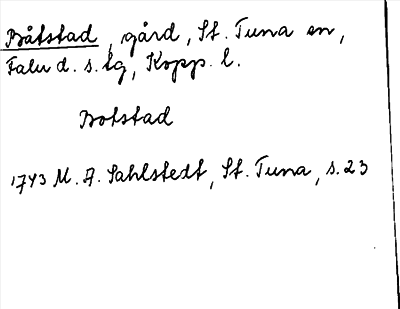 Båtstad, gård, St. Tuna sn,
Falu d. s. tg, Kopp. l.
Botstad
1743 M. A. Sahlstedt, St. Tuna, s. 23